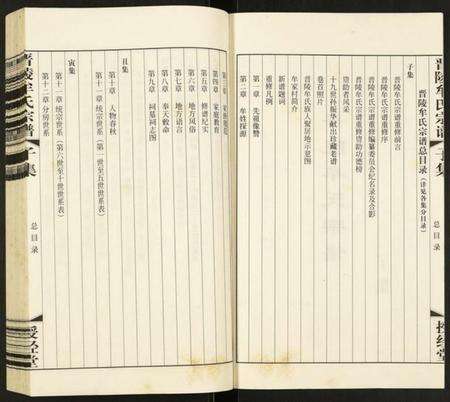 晋陵牟氏宗谱 子集
总目录
授经堂
晋陵牟氏宗谱总目录（详见各集分目录）
子集
晋陵牟氏宗谱重修前言
晋陵牟氏宗谱重修序
晋陵牟氏宗谱重修编纂委员会纪名录及合影
晋陵牟氏宗谱重修资助功德榜
资助者风采
十九世孙振华献出珍藏老谱
卷首照片
晋陵牟氏族人聚居地示意图
牟家村简介
新谱题词
重修凡例
第一章 先祖像赞
第二章 牟姓探源
第四章 家庭教育
第五章 修谱纪实
第六章 地方风俗
第七章 地方语言
第八章 奉天敕命
第九章 祠墓同志图
丑集
第十章 人物春秋
第十一章 统宗世系（第一世至五世世系表）
寅集
第十一章 统宗世系（第六世至十世世系表）
第十二章 分房世系
晋陵牟氏宗谱 子集
总目录
授经堂